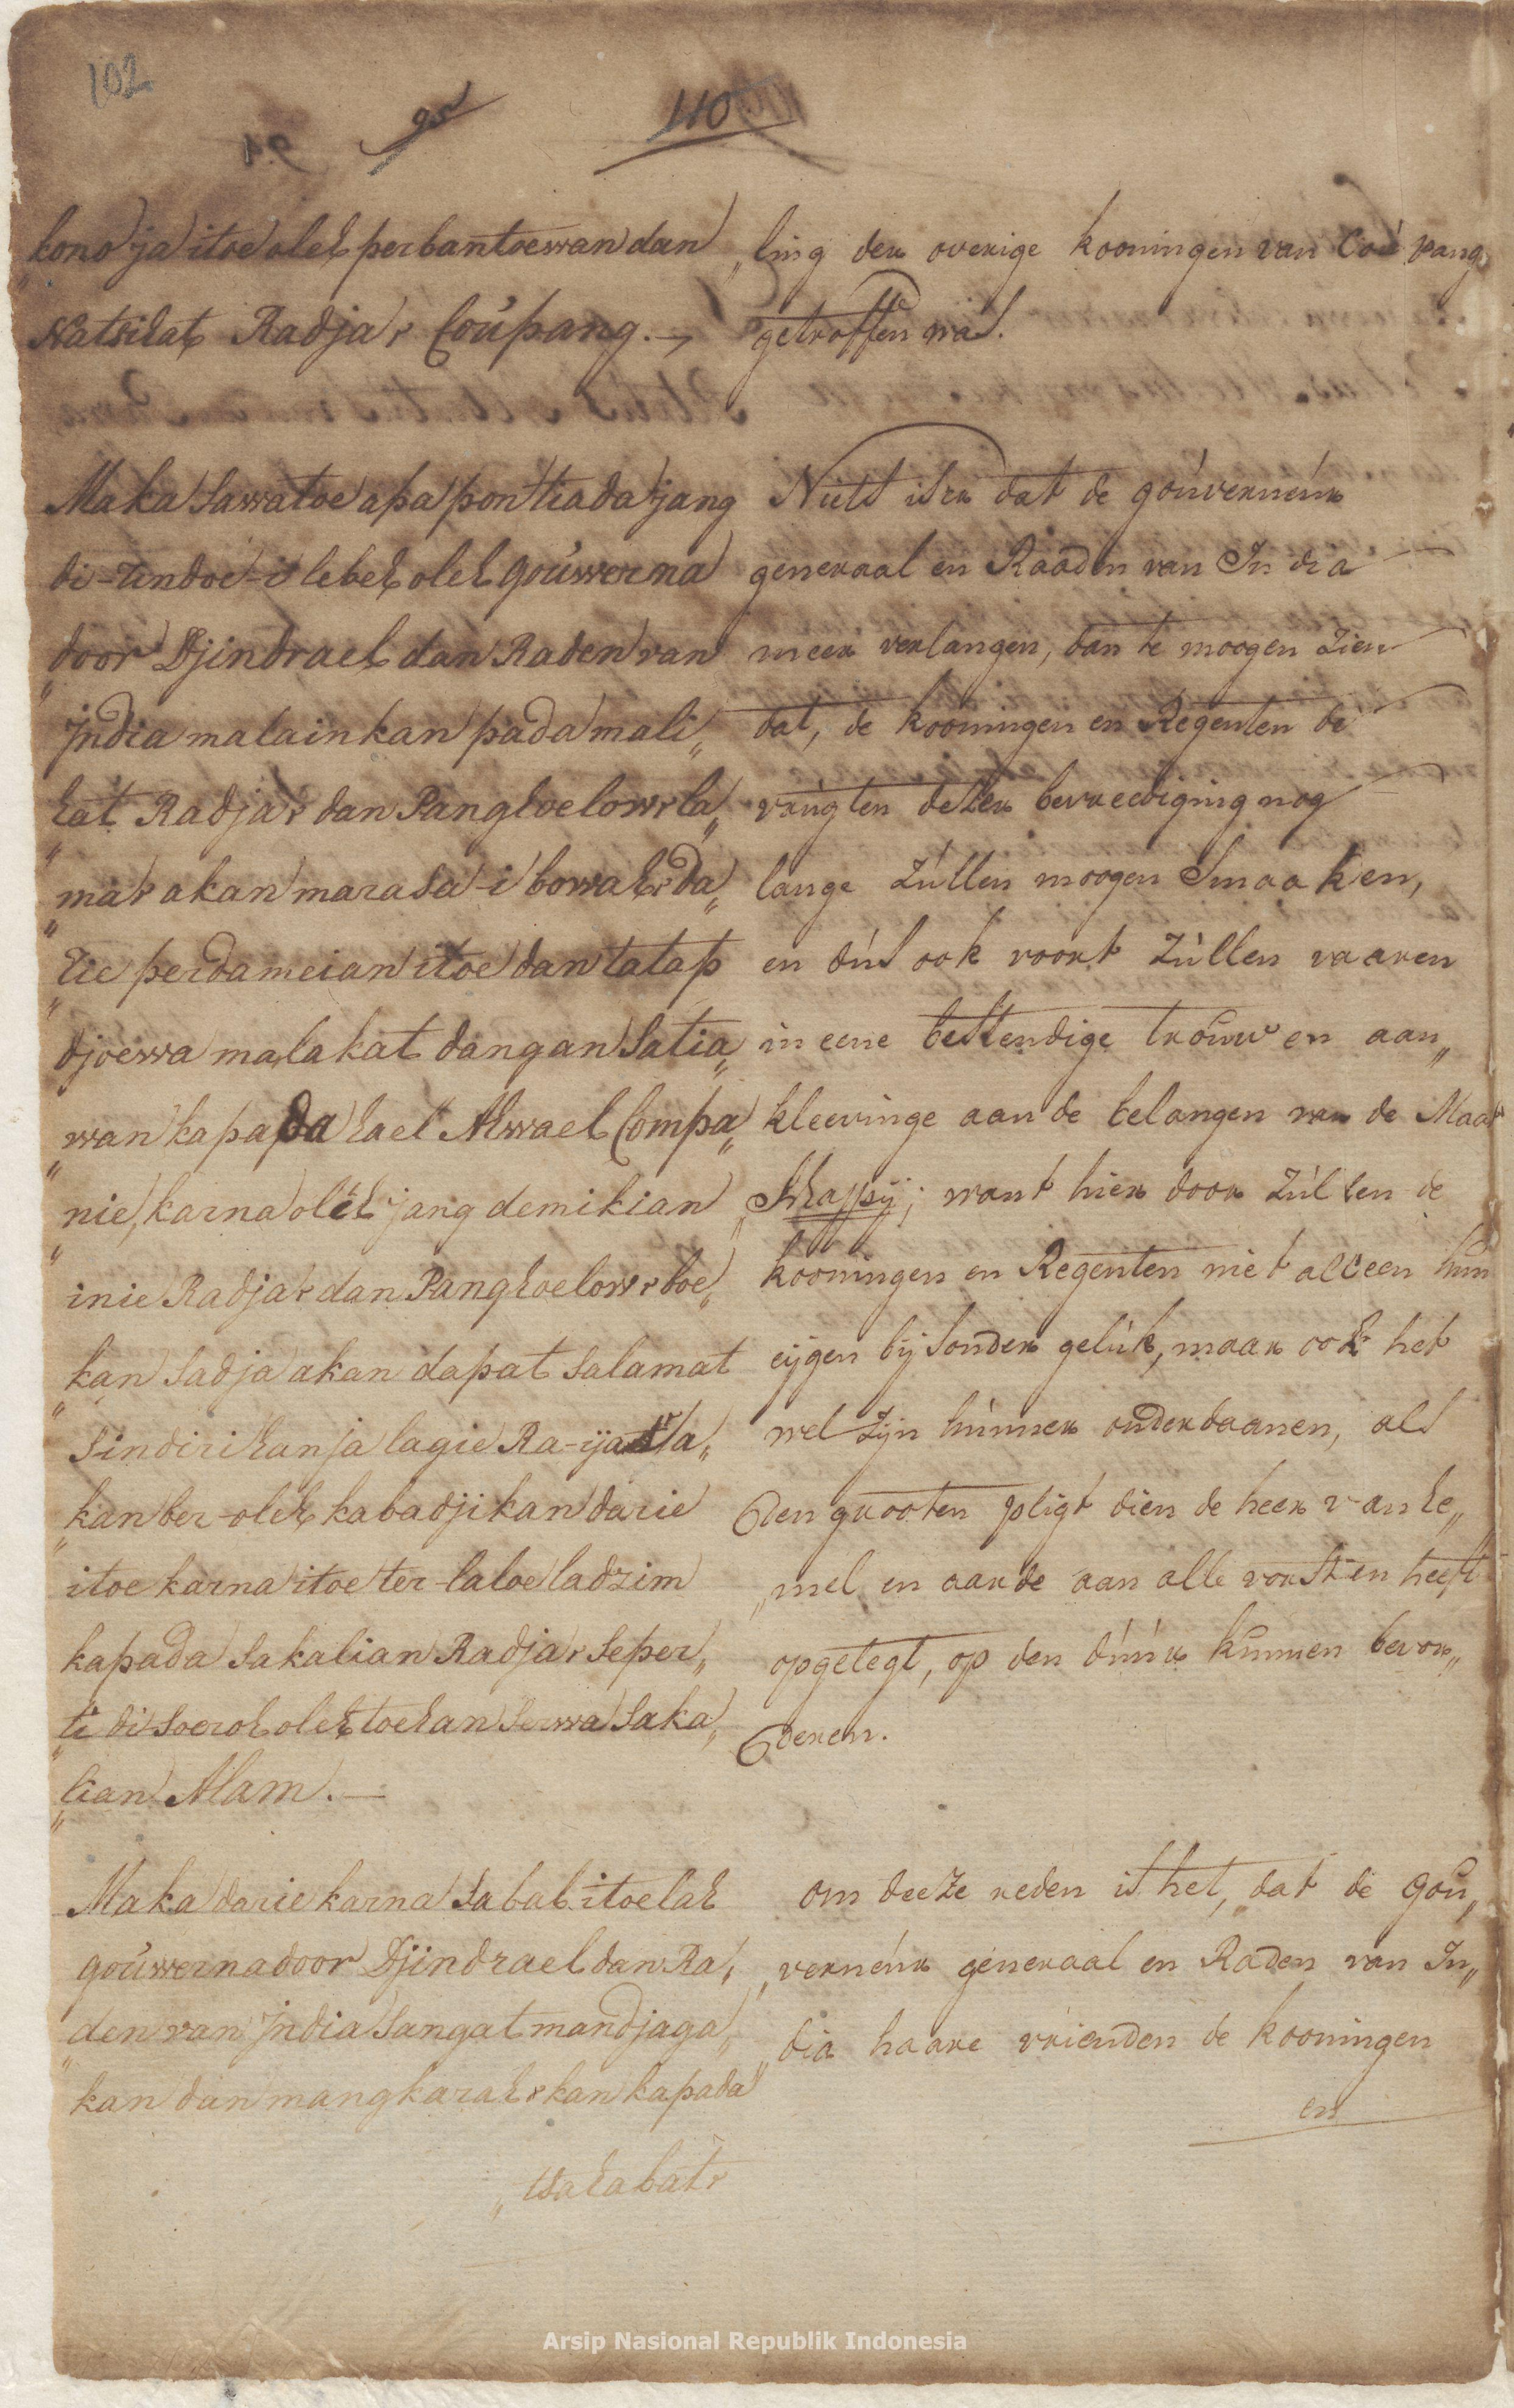 102
95
110
„kono ja itoe oleh perbantoewan dan
Natsihat Radja2 Coúpang.
Maka sawatoe apa pon tiada jang
di-rindoe-i lebeh oleh goúwerna
„door Djindrael dan Raden van
India malainkan pada mali„
„hat Radja2 dan Panghoelow2 la„
„ma2 akan marasa-i bowah2 da„
„rie perdameian itoe dan tatap
djoewa malakat dangan satia„
„wan kapada hael Alwael Compa„
„nie, karna oleh jang demikian
inie Radja2 dan Panghoelow2 boe„
„kan sadja akan dapat salamat
sindirihanja lagie Ra-ijat2 a„
„kan ber-oleh kabadjikan darie
itoe karna itoe ter-laloe ladzim
kapada sakalian Radja2 seper„
„ti di soeroh oleh toehan serwa saka„
„lian Alam.
Maka darie karna sabab itoelah
goúwernadoor Djindrael dan Ra„
„den van India sangat mandjaga„
„kan dan mangkarah2kan kapada
„tsahabat2
„ling der overige kooningen van Coúpang
getroffen was.
Niets is er dat de goúverneúr
generaal en Raaden van India
meer verlangen, dan te moogen zien
dat, de kooningen en Regenten de
vrúgten dezer bevreediging nog
lange zúllen moogen smaaken,
en dús ook voort zúllen vaaren
in eene bestendige troúw en aan„
kleevinge aan de belangen van de Maat
„schappij; want hier door zúllen de
kooningen en Regenten niet alleen hún
eijgen bijsonder gelúk, maar ook het
wel zijn húnner onderdaanen, als
den grooten pligt dien de heer van he„
„mel en aarde aan alle vorsten heeft
opgelegt, op den dúúr kúnnen bevor„
deren.
om deeze reden is het, dat de goú„
„verneúr generaal en Raden van In„
„dia haare vrienden de kooningen
en
Arsip Nasional Republik Indonesia